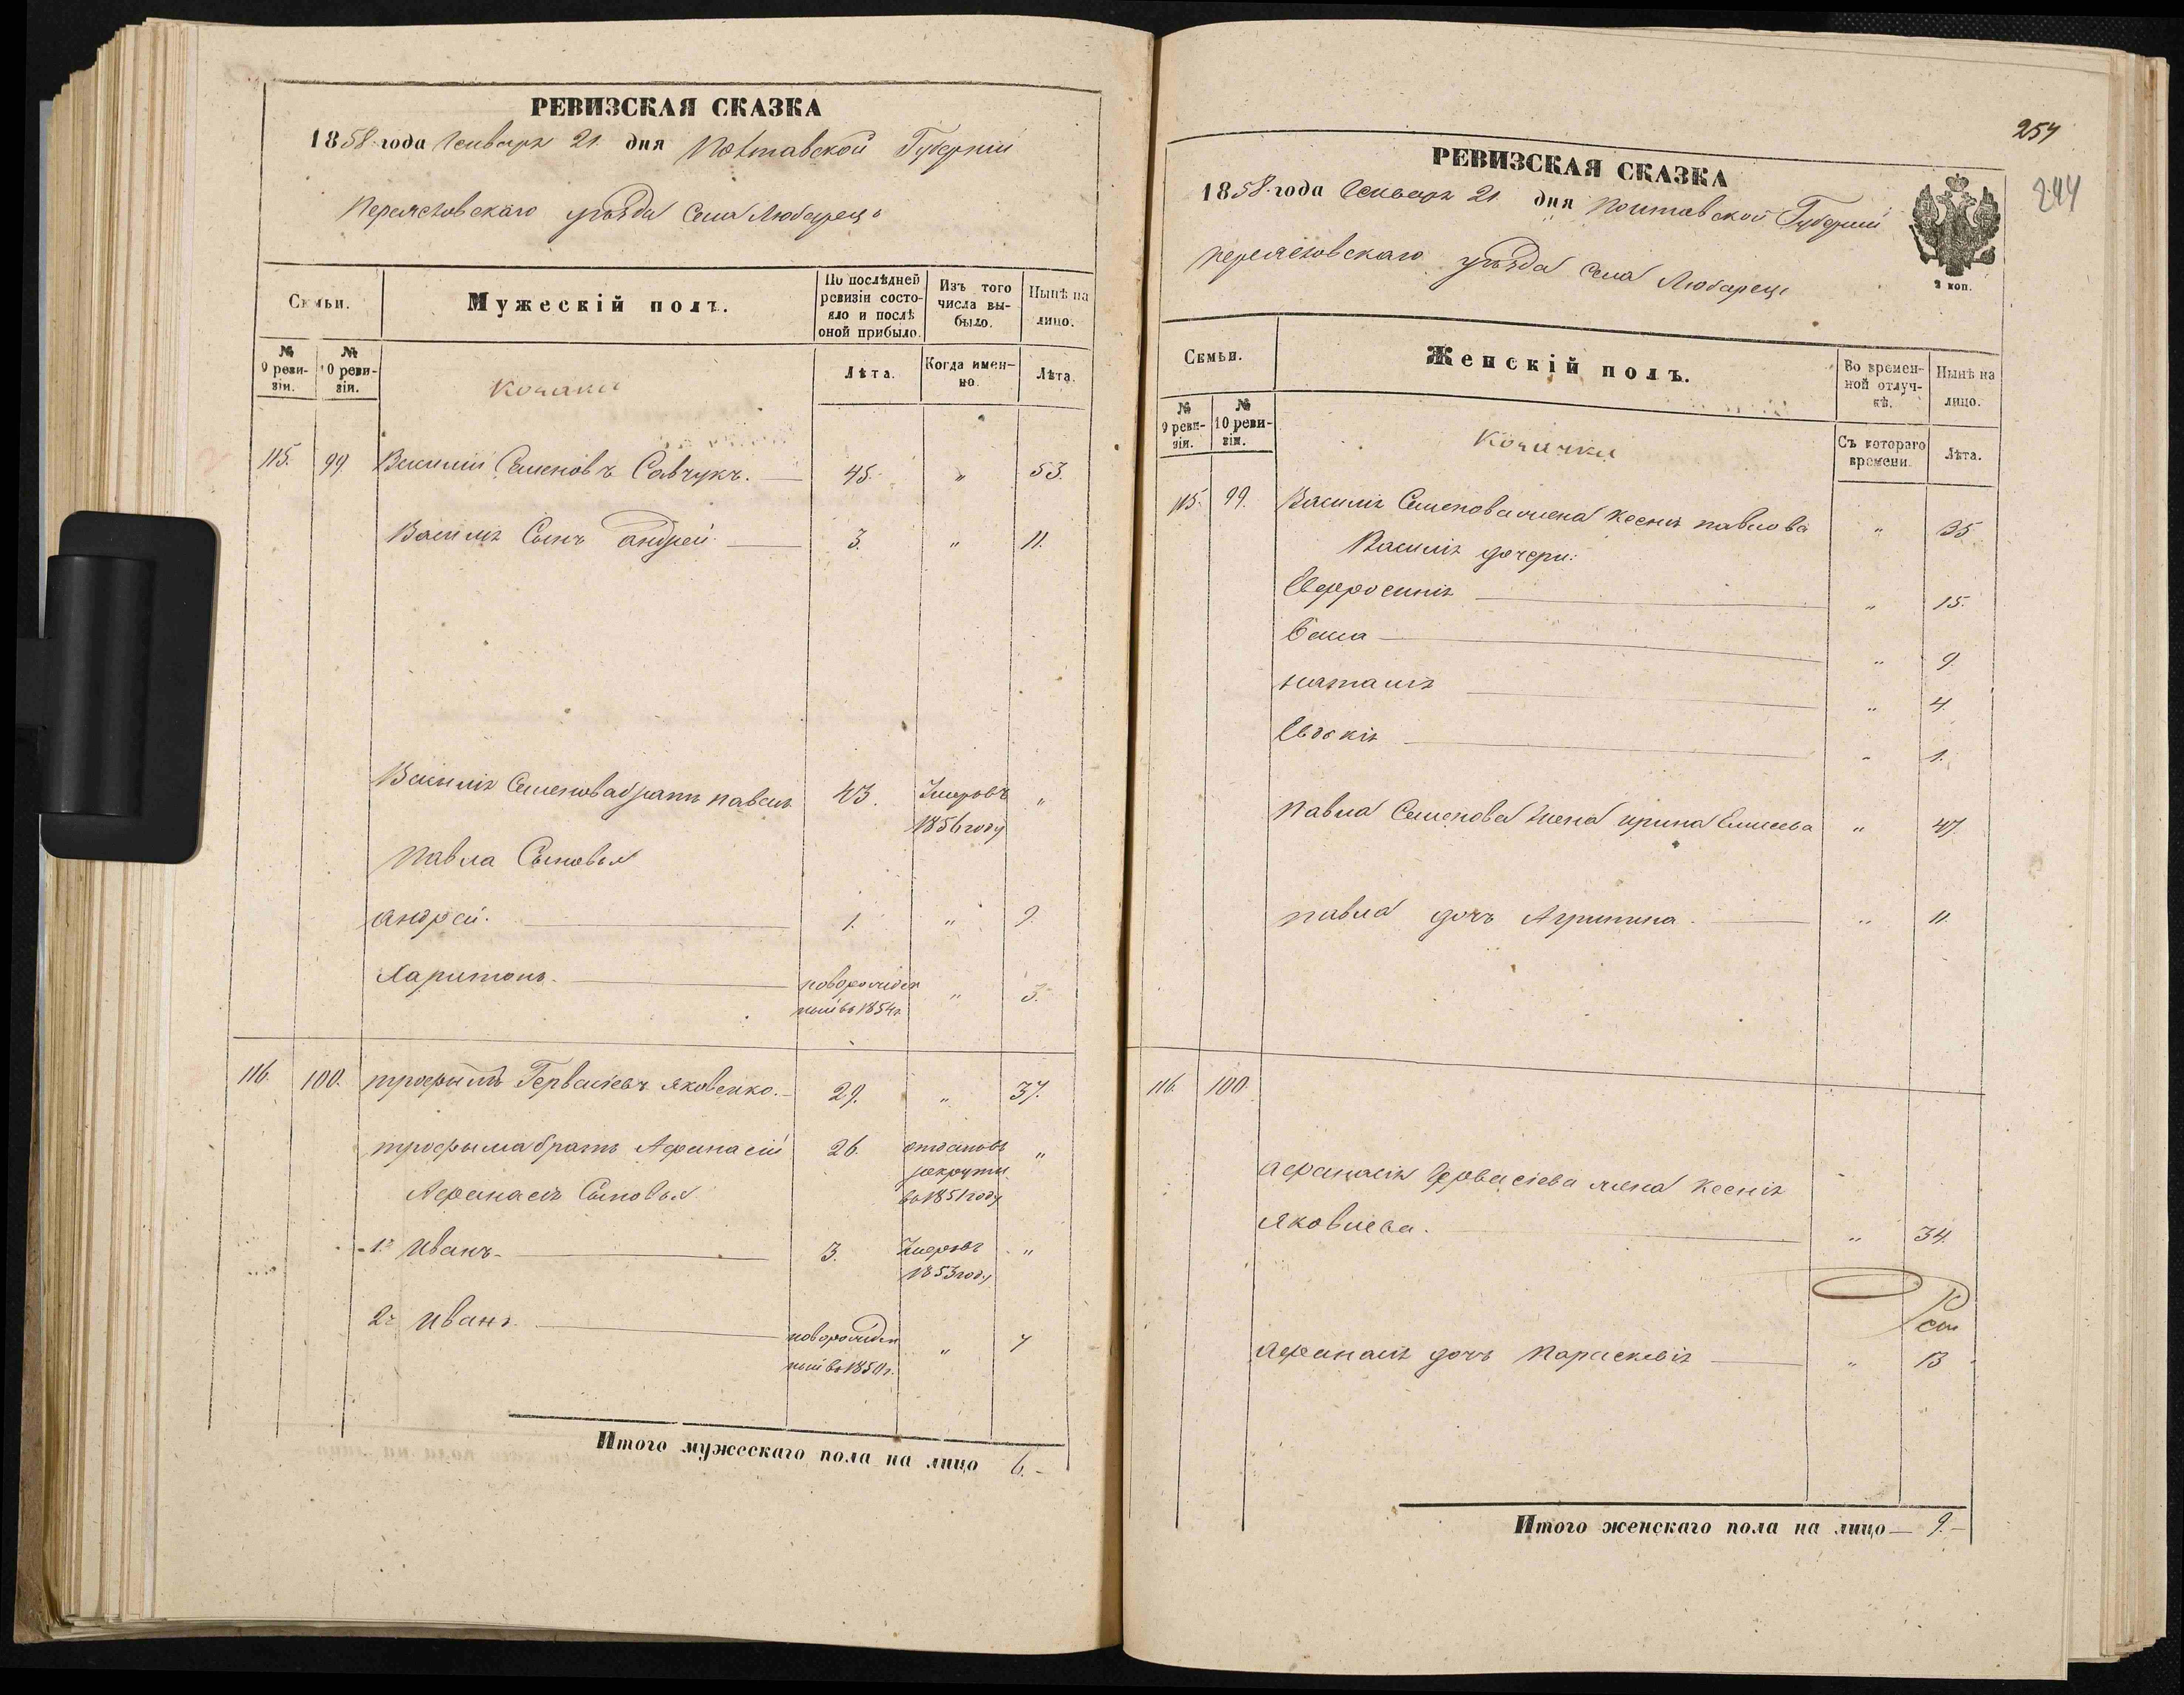 РЕВИЗСКАЯ СКАЗКА
1858 года Генваря 21 дня Полтавской Губерніи
Переяславскаго уѣзда Села Любарецъ
Семьи.
Мужескій полъ.
По послѣдней ревизіи состояло и послѣ оной прибыло.
Изъ того числа выбыло.
Нынѣ на лицо.
№ 9 ревизіи.
№ 10 ревизіи.
Козаки
Лѣта.
Когда именно.
Лѣта.
115. 99 Василій Семеновъ Савчукъ. 45. " 53.
Василія Сынъ андрей 3. " 11.
Василія Семенова братъ павелъ 43. Умеръ въ 1856 году "
Павла Сыновья
андрей. 1. " 9.
Харитонъ. новорожденный въ 1854 г. " 3.
116. 100. трофимъ Гервасіевъ яковенко. 29. " 37.
трофыма братъ Афанасій 26. отданъ въ рекруты въ 1851 году "
Афанасія Сыновья
1й Иванъ 3. Умеръ въ 1853 году "
2й Иванъ новорожденный въ 1850 г. " 7
Итого мужескаго пола на лицо 6.
254
244
РЕВИЗСКАЯ СКАЗКА
1858 года Генваря 21 дня Полтавской Губерніи
переяславскаго уѣзда Села Любарецъ
2 коп.
Семьи.
Женскій полъ.
Во временной отлучкѣ.
Нынѣ на лицо.
№ 9 ревизіи.
№ 10 ревизіи.
Козачки
Съ котораго времени.
Лѣта.
115. 99. Василія Семенова жена Ксенія павлова " 35
Василія дочери:
Евфросинія " 15.
" 9.
наталія " 4.
Евдокія " 1.
Павла Семенова жена ирина Елисеева " 47
павла дочь Агрипина " 11
116. 100.
Афанасія Гервасіева жена Ксенія
Яковлева. " 34.
Афанасія дочь Параскевія " 13
Итого женскаго пола на лицо 9.